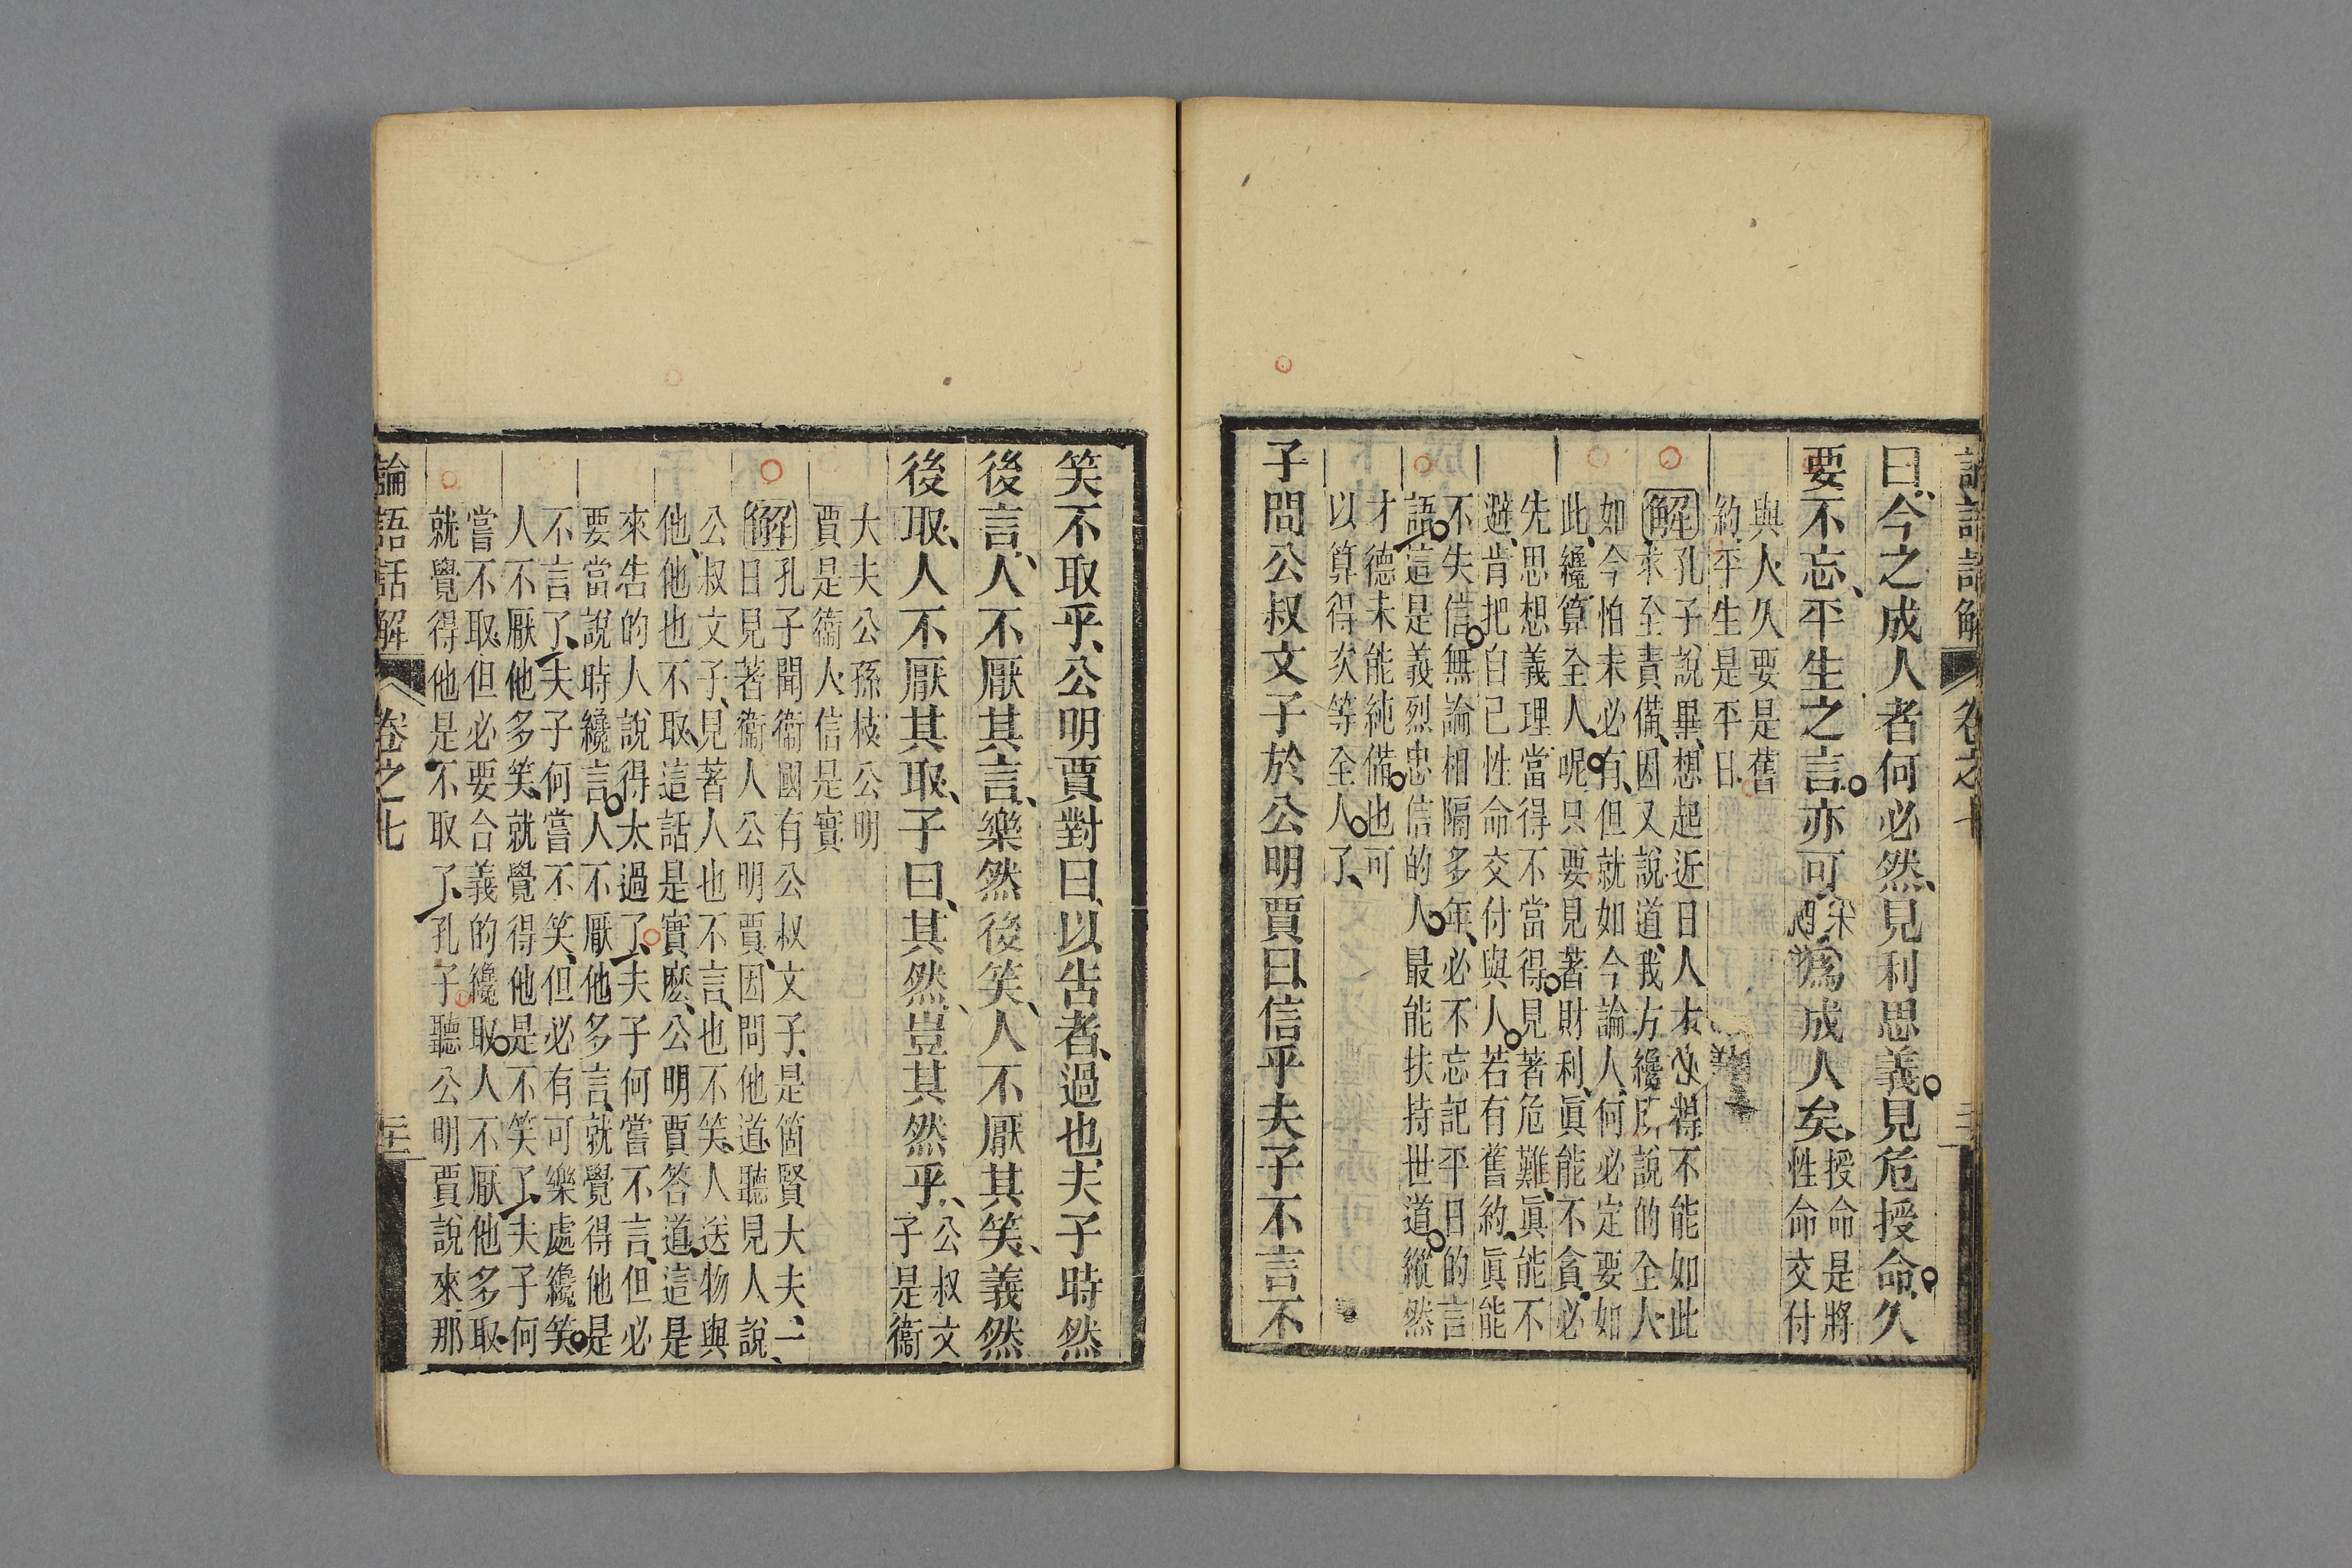 曰今之成人者何必然見利思義見危授命久
要不忘平生之言亦可
爲成人矣授命是將
性命交付
與人久要是舊
約平生是平日
解孔子說畢想起近日人才必得不能如此
求至責備因又說道我方纔所說的全人
如今怕未必有但就如今論人何必定要如
此纔算全人呢只要見著財利眞能不貪必
先思想義理當得不當得見著危難眞能不
避肯把自己性命交付與人若有舊約眞能
不失信無論相隔多年必不忘記平日的言
語這是義烈忠信的人最能扶持世道縱然
才德未能純備也可
以算得次等全人了
子問公叔文子於公明賈曰信乎夫子不言不
笑不取乎公明賈對曰以告者過也夫子時然
後言人不厭其言樂然後笑人不厭其笑義然
後取人不厭其取子曰其然豈其然乎公叔文
子是衞
大夫公孫枝公明
賈是衞人信是實
解孔子聞衞國有公叔文子是箇賢大夫一
日見著衞人公明賈因問他道聽見人說
公叔文子見著人也不言也不笑人送物與
他他也不取這話是實麽公明賈答道這是
來告的人說得太過了夫子何嘗不言但必
要當說時纔言人不厭他多言就覺得他是
不言了夫子何嘗不笑但必有可樂處纔笑
人不厭他多笑就覺得他是不笑了夫子何
嘗不取但必要合義的纔取人不厭他多取
就覺得他是不取了孔子聽公明賈說來那
論語話解 卷之七